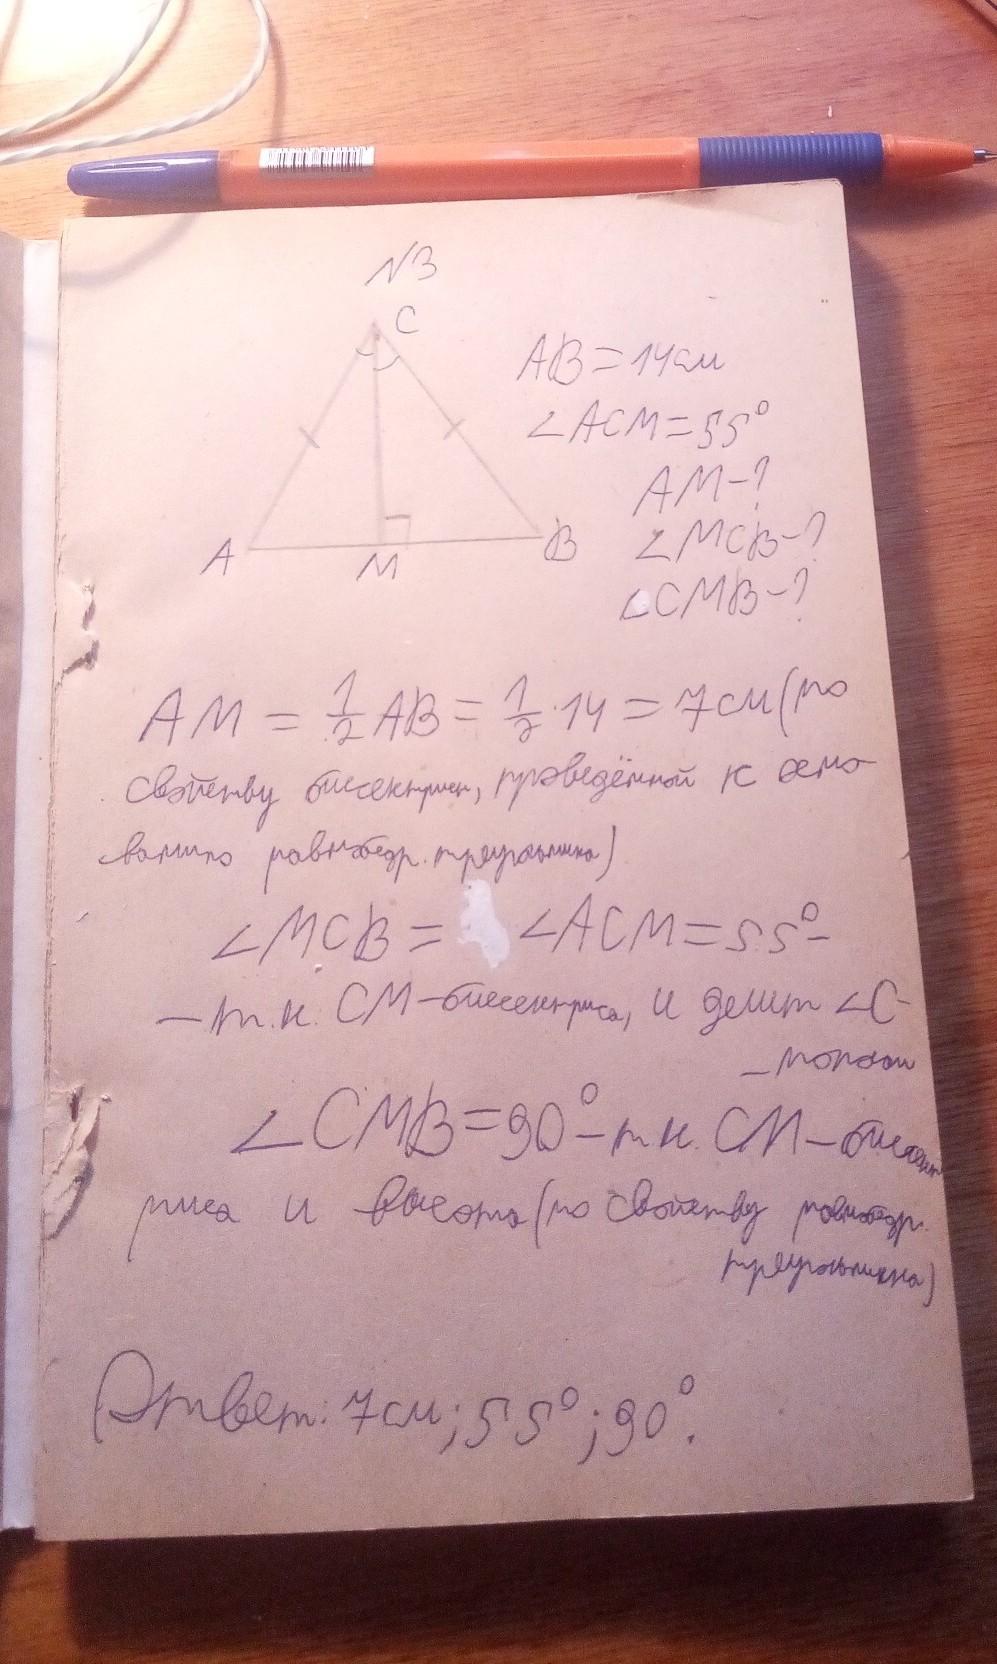 N3
C
A
M
B
AB=14см
∠ACM=55°
AM-?
∠MCB-?
∠CMB-?
AM = 1/2 AB = 1/2 · 14 = 7см (по
свойству биссектрисы, проведённой к осно-
ванию равнобедр. треугольника)
∠MCB = ∠ACM = 55° –
– т.к. CM – биссектриса, и делит ∠C –
– пополам
∠CMB = 90° – т.к. CM – биссект
риса и высота (по свойству равнобедр.
треугольника)
Ответ: 7см; 55°; 90°.